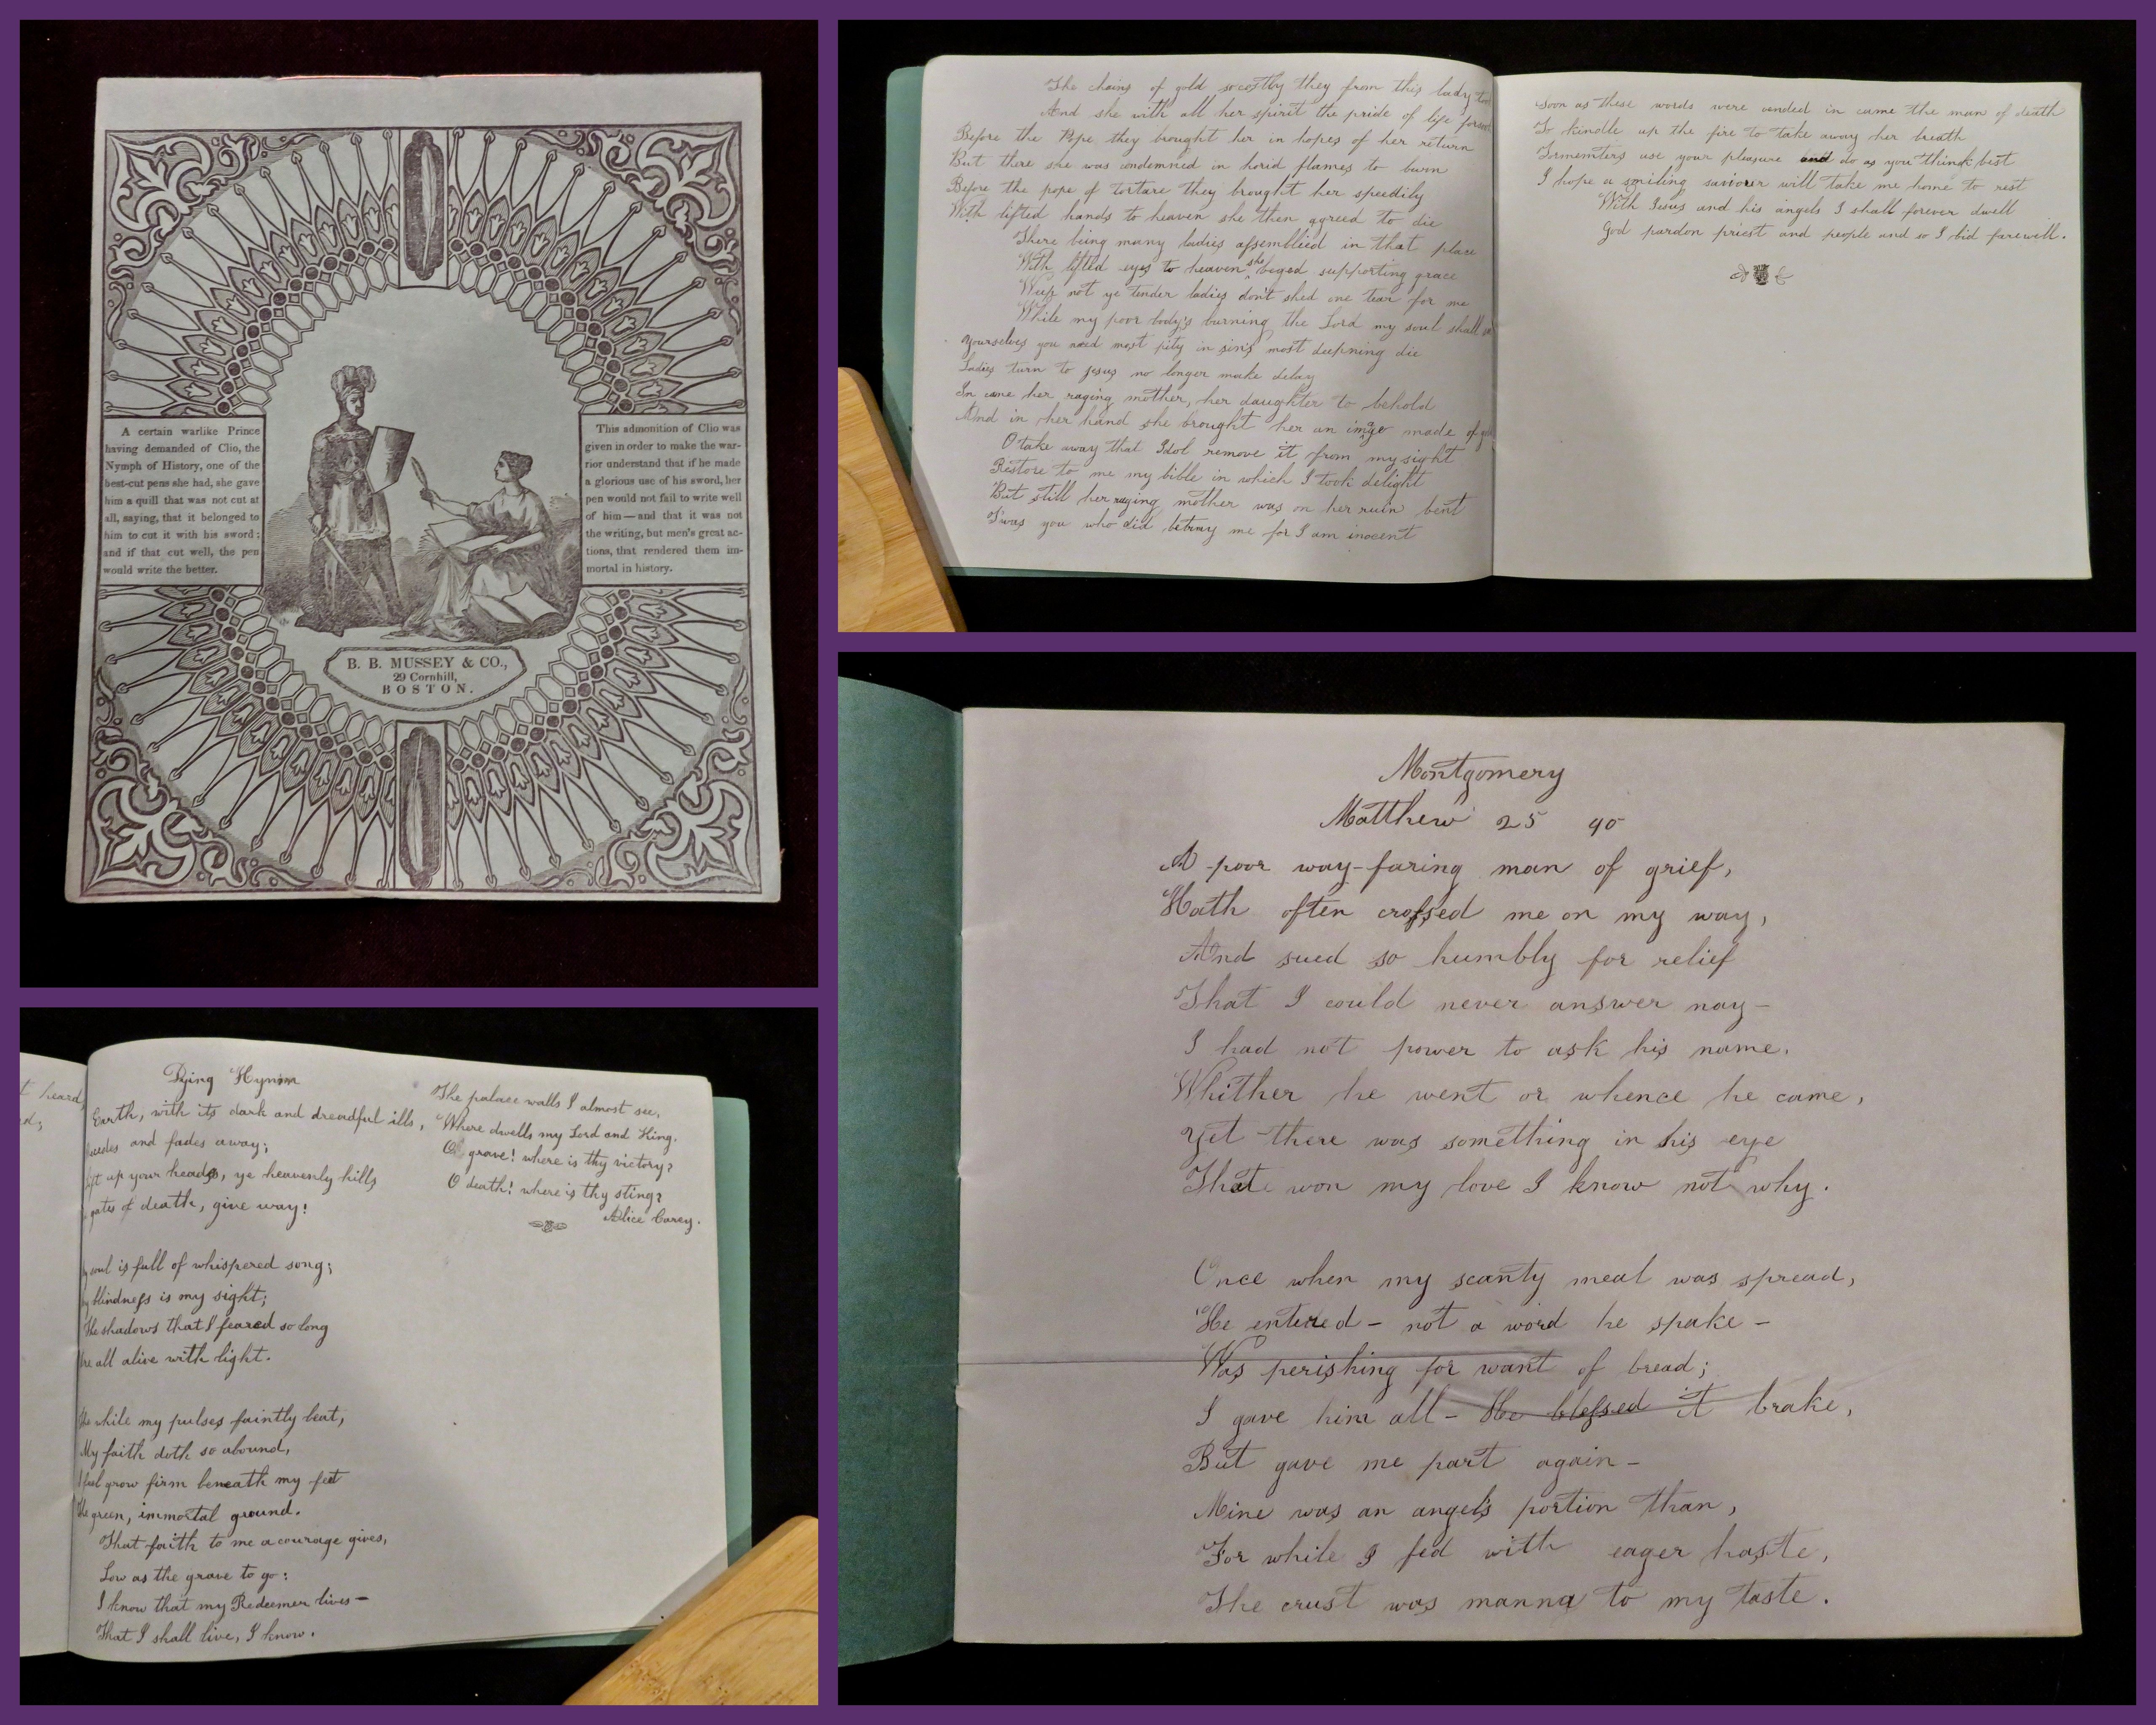 A certain warlike Prince
having demanded of Clio, the
Nymph of History, one of the
best-cut pens she had, she gave
him a quill that was not cut at
all, saying, that it belonged to
him to cut it with his sword;
and if that cut well, the pen
would write the better.
This admonition of Clio was
given in order to make the war-
rior understand that if he made
a glorious use of his sword, her
pen would not fail to write well
of him — and that it was not
the writing, but men's great ac-
tions, that rendered them im-
mortal in history.
B. B. MUSSEY & CO.,
29 Cornhill,
BOSTON.
The chains of gold so costly they from this lady
And she with all her spirit the pride of life
Before the Pope they brought her in hopes of her return
But there she was condemned in horid flames to burn
Before the pope of torture they brought her speedily
With lifted hands to heaven she then agreed to die
There being many ladies assemblied in that place
With lifted eyes to heaven she beged supporting grace
Weep not ye tender ladies don't shed one tear for me
While my poor body's burning the Lord my soul shall
Yourselves you need most pity in sin's most deepning die
Ladies turn to Jesus no longer make delay
In came her raging mother, her daughter to behold
And in her hand she brought her an image made of
O take away that Idol remove it from my sight
Restore to me my bible in which I took delight
But still her raging mother was on her ruin bent
Twas you who did betray me for I am inocent
Soon as these words were ended in came the man of death
To kindle up the fire to take away her breath
Tormenters use your pleasure and do as you think best
I hope a smiling saviour will take me home to rest
With Jesus and his angels I shall forever dwell
God pardon priest and people and so I bid farewill.
t heard,
Dying Hymn
Earth, with its dark and dreadful ills,
and fades away;
up your heads, ye heavenly hills
gates of death, give way!
soul is full of whispered song;
blindness is my sight;
The shadows that I feared so long
Are all alive with light.
The while my pulses faintly beat,
My faith doth so abound,
I feel grow firm beneath my feet
The green, immortal ground.
That faith to me a courage gives,
Low as the grave to go:
I know that my Redeemer lives—
That I shall live, I know.
The palace walls I almost see,
Where dwells my Lord and King.
O grave! where is thy victory?
O death! where is thy sting?
Alice Carey.
Montgomery
Matthew 25 40
A poor way-faring man of grief,
Hath often crossed me on my way,
And sued so humbly for relief
That I could never answer nay—
I had not power to ask his name.
Whither he went or whence he came,
Yet there was something in his eye
That won my love I know not why.
Once when my scanty meal was spread,
He entered — not a word he spake —
Was perishing for want of bread;
I gave him all — He blessed it brake,
But gave me part again —
Mine was an angel's portion than,
For while I fed with eager haste,
The crust was manna to my taste.